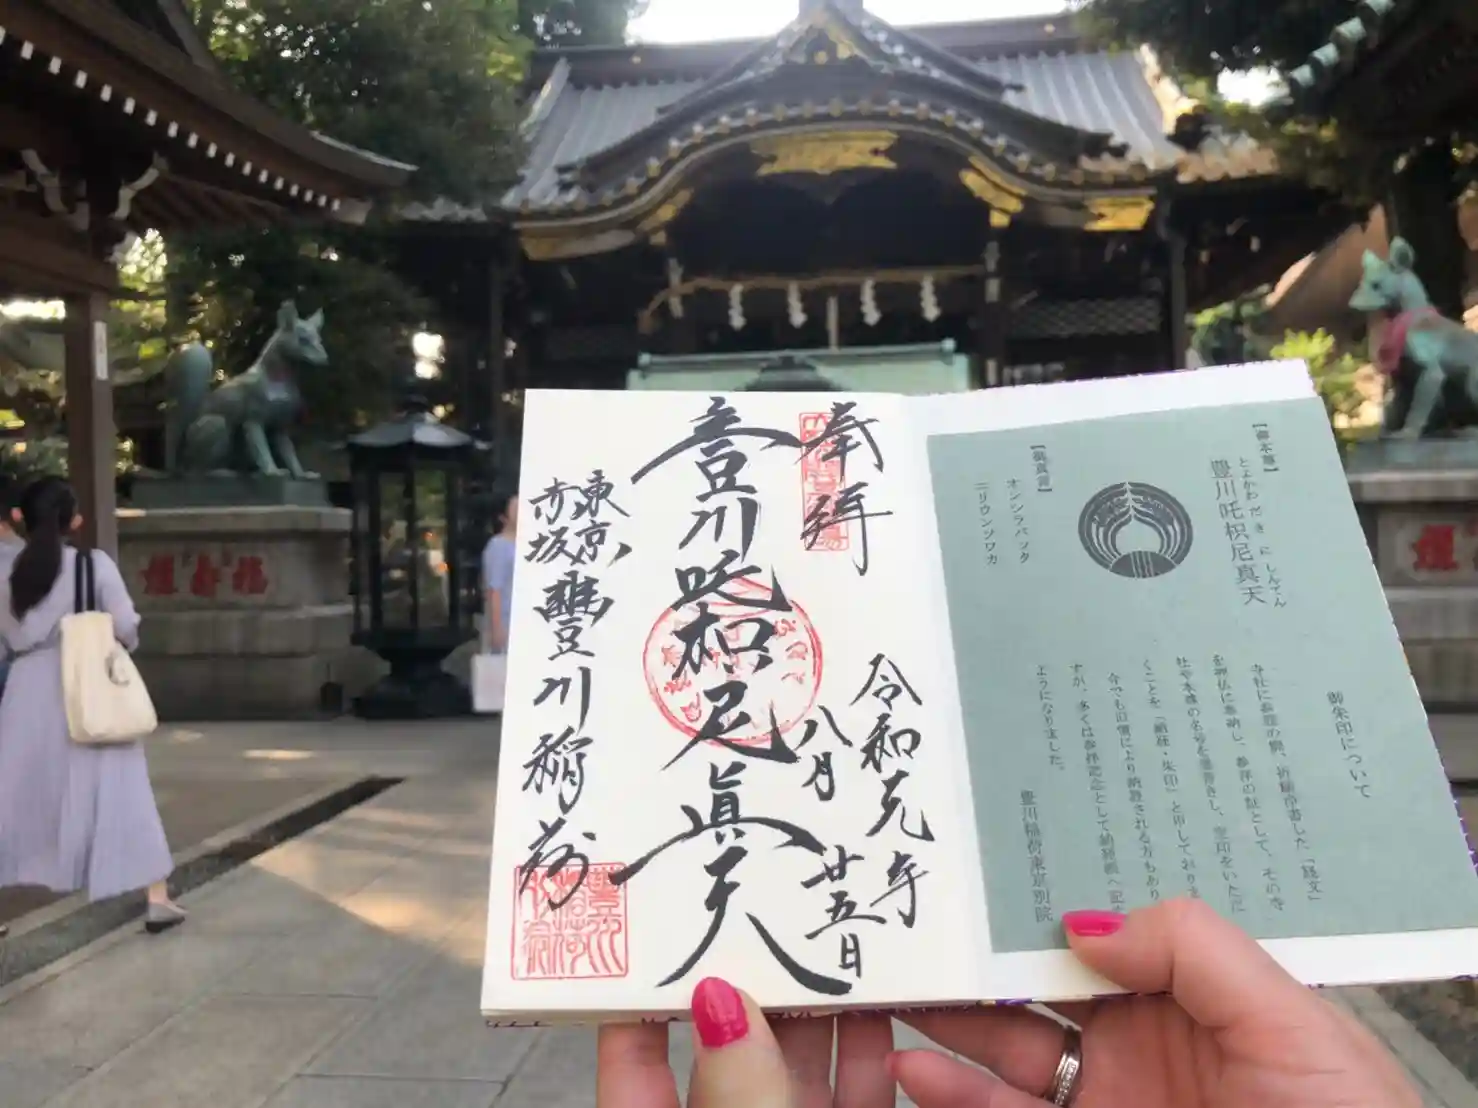 奉拝
令和元年
八月廿五日
豊川吒枳尼眞天
東京
赤坂
豊川稲荷
【御本尊】
とよかわ だ き に しんてん
豊川吒枳尼真天
【御真言】
オンシラバッタ
ニリウンソワカ
御朱印について
寺社に参詣の際、祈願浄書した「経文」
を神仏に奉納し、参拝の証として、その寺
社や本尊の名号を墨書きし、宝印をいただ
くことを「納経・朱印」と申しており
今でも旧慣により納経される方もあり
すが、多くは参拝記念として納経帳へ記
ようになりました。
豊川稲荷東京別院
福寿